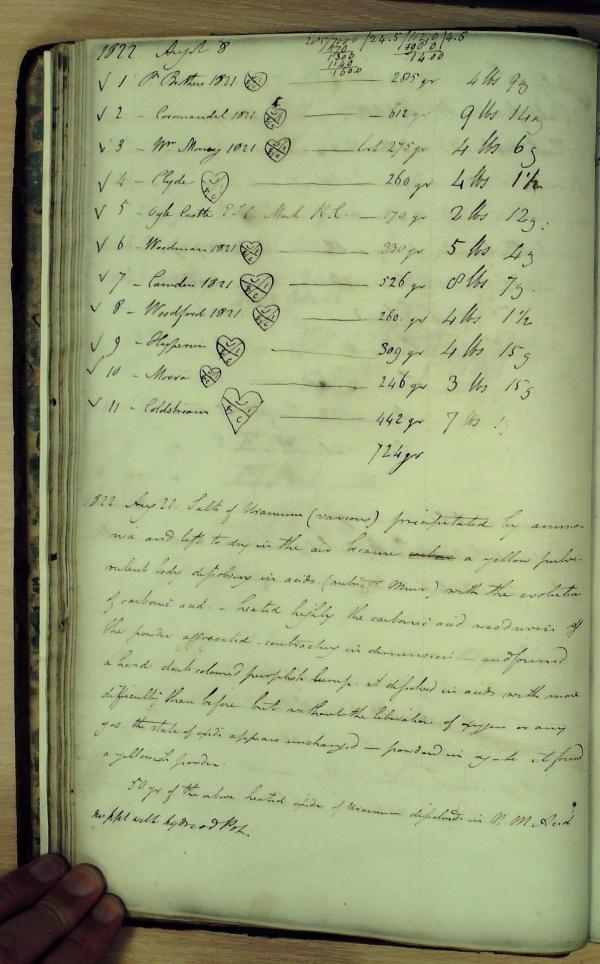 1822 Augst 8
√ 1 Pr Brothers 1821 285 gr 4 lbs 9
√ 2 – Coromandel 1821 612 gr 9 lbs 14
√ 3 – Wm Money 1821 275 gr 4 lbs 6
√ 4 – Clyde 260 gr 4 lbs 1½
√ 5 – Ogle Castle Mark K.C. 170 gr 2 lbs 12
√ 6 – Woodman 1821 330 gr 5 lbs 4
√ 7 – Camden 1821 526 gr 8 lbs 7
√ 8 – Woodford 1821 260 gr 4 lbs 1½
√ 9 – Hyperion 309 gr 4 lbs 15
√ 10 – Moira 246 gr 3 lbs 15
√ 11 – Coldstream 442 gr 7 lbs
724 gr
1822 Aug 21. Salts of Uranium (various) precipitated by ammo-
nia and left to dry in the air became a yellow pulve-
rulent body dissolving in acids (nitric & Mur.) with the evolution
of carbonic acid. – heated highly the carbonic acid was driven off
the powder aggregated – contracting in dimension – and formed
a hard dark coloured purplish lump. it dissolved in acids with more
difficulty than before but without the liberation of oxygen or any
gas. the state of oxide appears unchanged – powdered in agate it formed
a yellowish powder.
50 gr of the above heated oxide of Uranium dissolved in N. M. Acid
no ppt with hydriod Pot.